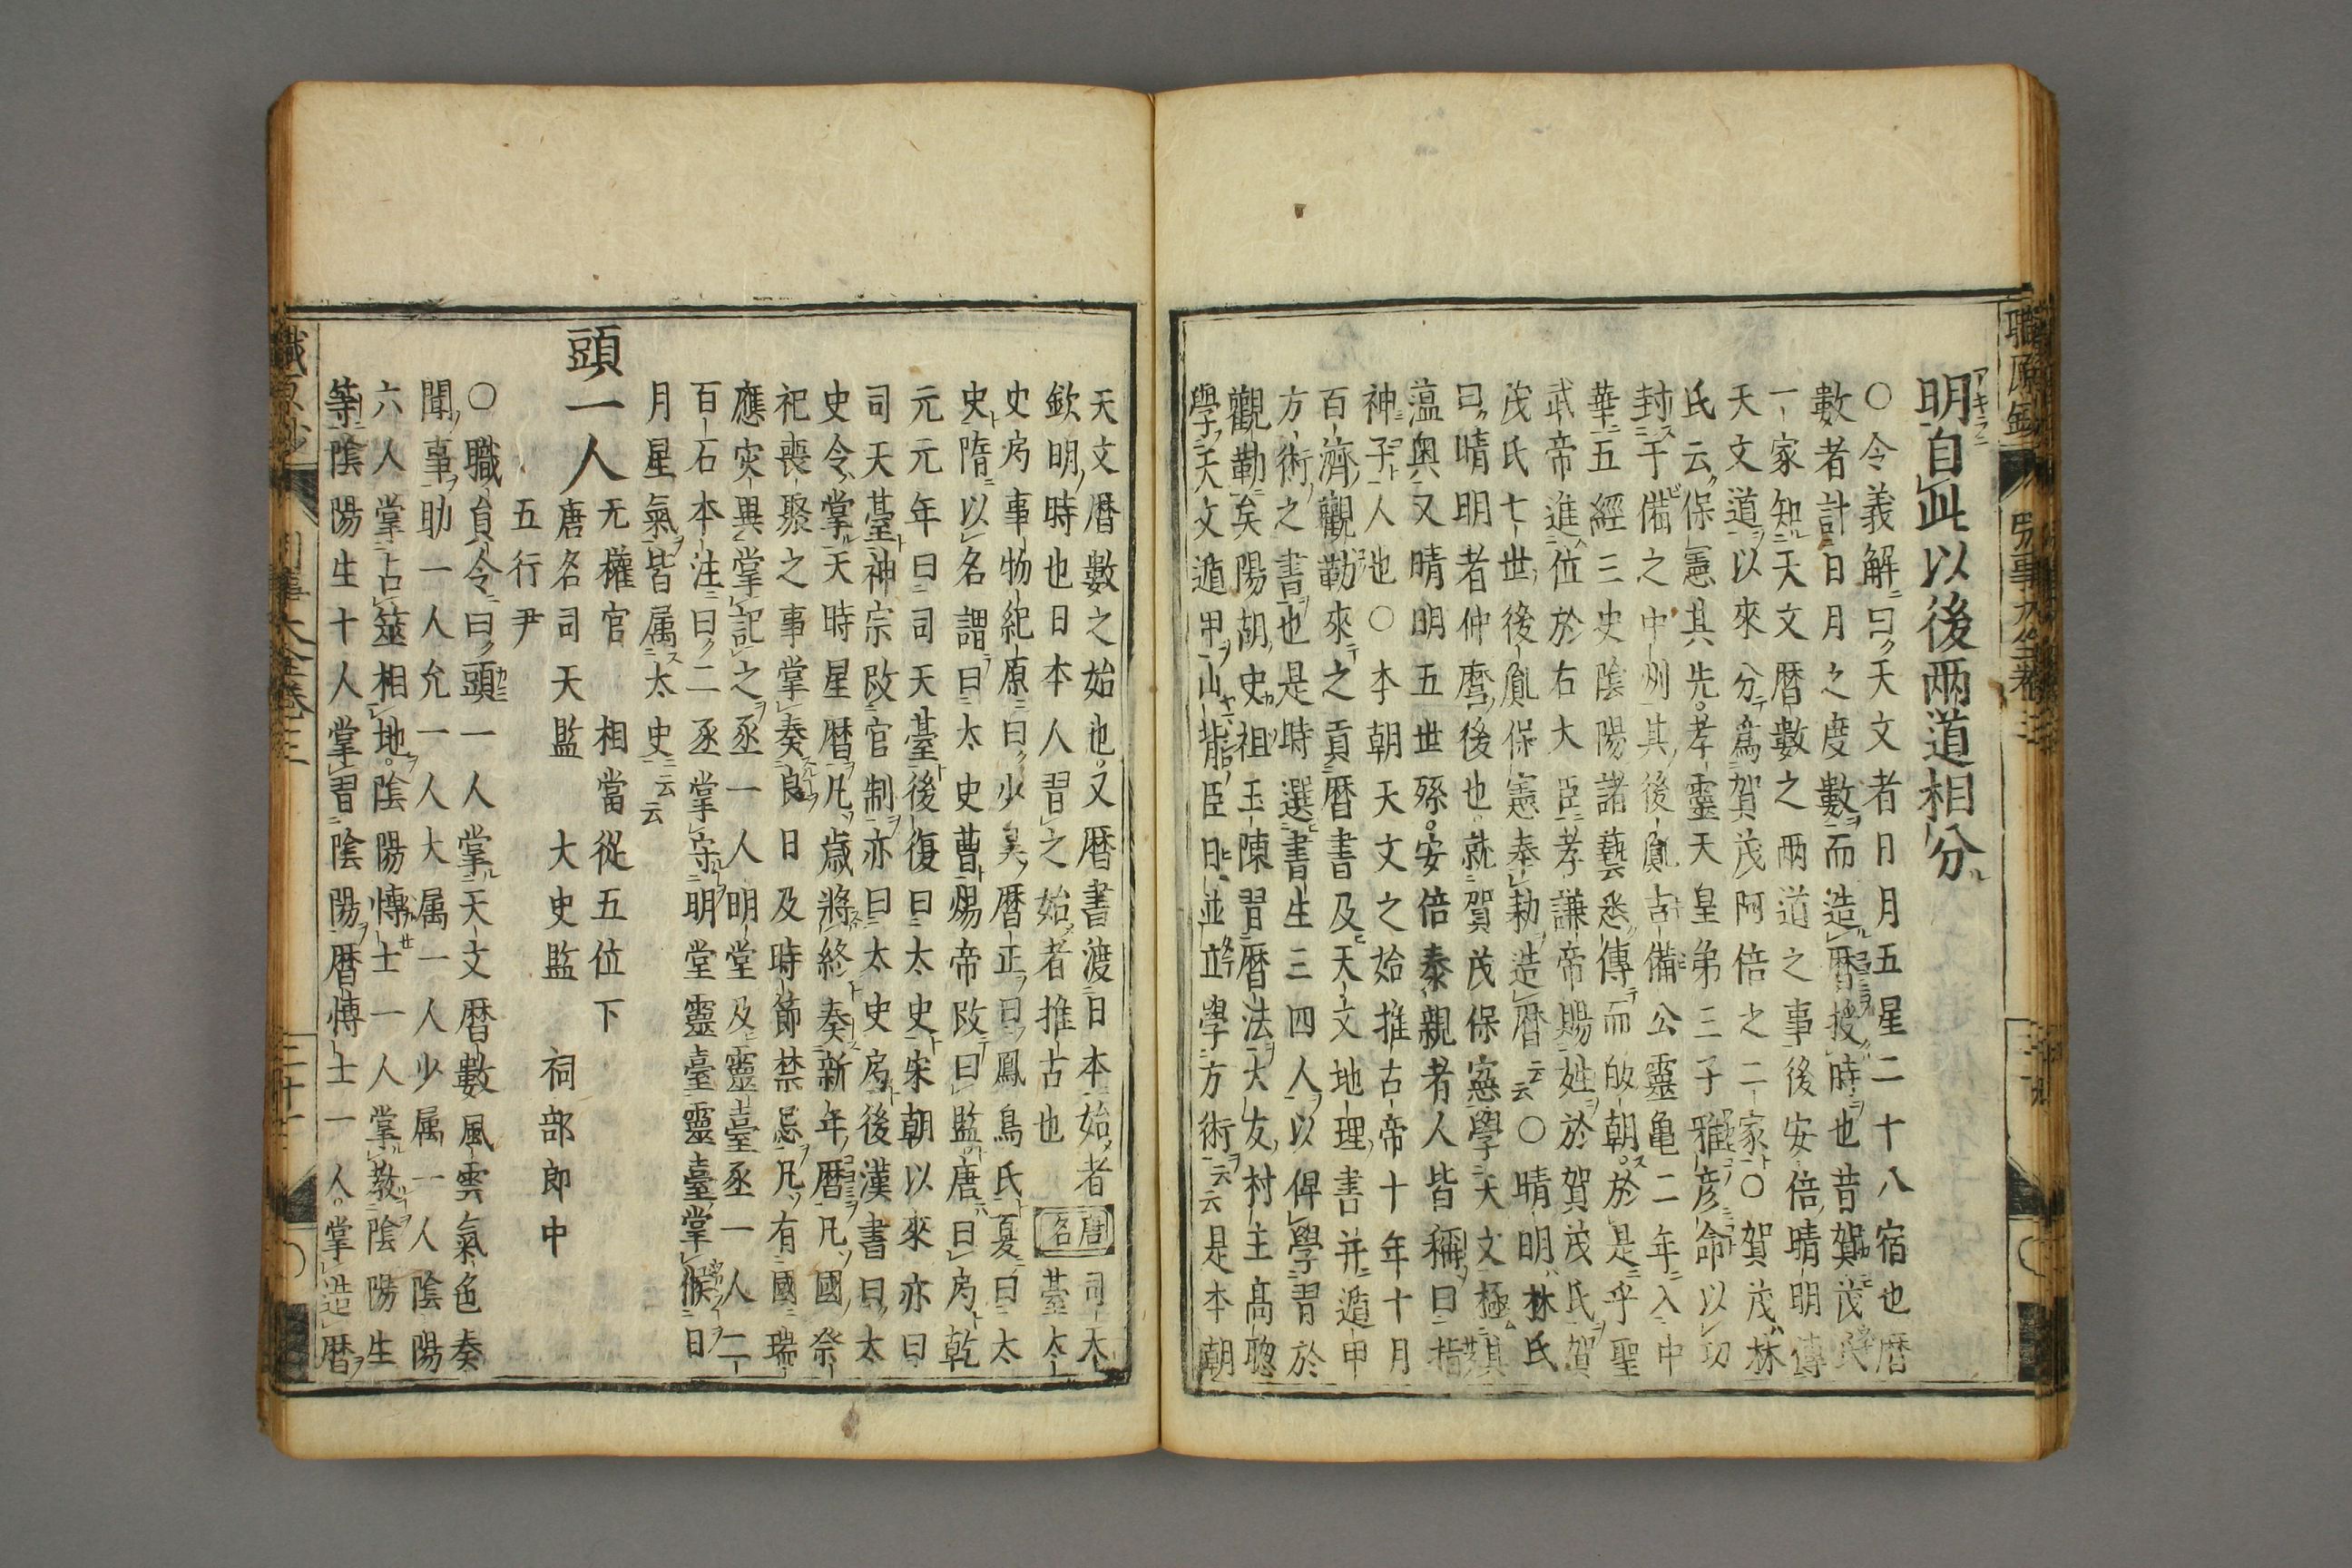 明自此以後兩道相分
○令義解曰天文者日月五星二十八宿也曆
數者計日月之度數而造曆授時也昔賀茂氏
一家知天文曆數之兩道之事後安倍晴明傳
天文道以來分爲賀茂阿倍之二家○賀茂林
氏云保憲其先孝靈天皇弟三子雅彦命以功
封于備之中州其後胤吉備公靈亀二年入中
華五經三史陰陽諸藝悉傳而皈朝於是乎聖
武帝進位於右大臣孝謙帝賜姓於賀茂氏賀
茂氏七世後胤保憲奉勅造曆云云○晴明林氏
曰晴明者仲麿後也就賀茂保憲學天文極其
薀奥又晴明五世孫安倍泰親者人皆稱曰指
神子人也○本朝天文之始推古帝十年十月
百濟觀勒來之貢曆書及天文地理書并遁甲
方術之書也是時選書生三四人以俾學習於
觀勒矣陽胡史祖玉陳習曆法大友村主髙聦
學天文遁甲山背臣日並立學方術云云是本朝
天文曆數之始也又曆書渡日本始者
欽明時也日本人習之始者推古也 唐名 司天臺太
史局事物紀原曰少昊曆正曰鳳鳥氏夏曰太
史隋以名謂曰太史曹煬帝改曰監唐曰局乾
元元年曰司天臺後復曰太史宋朝以來亦曰
司天臺神宗改官制亦曰太史局後漢書曰太
史令掌天時星曆凡歳將終奏新年曆凡國祭
祀喪娶之事掌奏良日及時節禁忌凡有國瑞
應灾異掌記之丞一人明堂及靈臺丞一人二
百石本注曰二丞掌守明堂靈臺靈臺掌候日
月星氣皆属太史云云
頭一人 无權官 相當從五位下
唐名司天監 大史監 祠部郎中
五行尹
○職員令曰頭一人掌天文曆數風雲氣色奏
聞事助一人允一人大属一人少属一人陰陽
六人掌占筮相地陰陽博士一人掌教陰陽生
等陰陽生十人掌習陰陽曆博士一人掌造曆